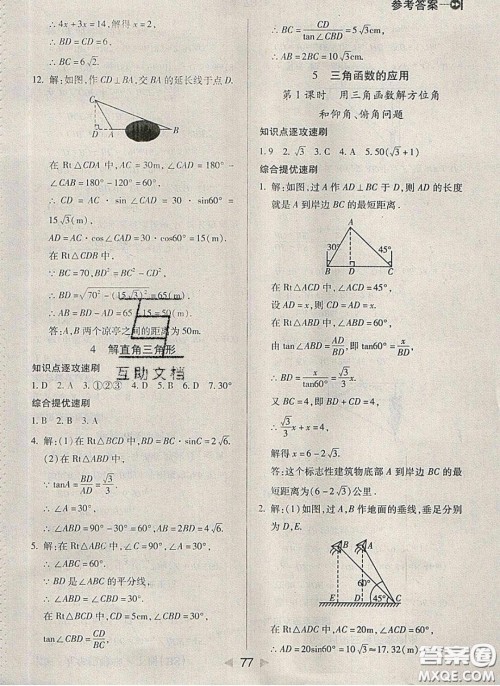 参考答案
∴4x+3x=14,解得x=2.
∴BD=CD=6.
∴BC=6√2.
12. 解:如图,作CD⊥BA,交BA的延长线于点D.
C
D A B
在Rt△CDA中,AC=30m,∠CAD=
∠CAB=180°-120°=60°,
∴CD=AC·sin∠CAD=30·sin60°=
15√3(m).
AD=AC·cos∠CAD=30·cos60°=15(m).
在Rt△CDB中,
∵BC=70,BD²=BC²-CD²,
∴BD=√70²-(15√3)²=65(m).
∴AB=BD-AD=65-15=50(m).
答:A,B两个凉亭之间的距离为50m.
4 解直角三角形
知识点逐攻速刷
互助文档
1. D 2. A 3. ①②③ 4. D 5. B 6. D 7. 30°
综合提优速刷
1. B 2. B 3. A
4. 解:(1)在Rt△BCD中,BD=BC·sinC=2√6.
(2)在Rt△ABD中,
∵tanA=BD/AD=√3/3.
∴∠A=30°.
∴∠ABD=90°-30°=60°.
5. 解:在Rt△ABC中,∠C=90°,∠A=30°,
∴∠ABC=60°.
∵BD是∠ABC的平分线,
∴∠CBD=∠ABD=30°.
又∵在Rt△CBD中,CD=5cm,∠CBD=30°,
∴tan∠CBD=CD/BC,
∴BC=CD/tan∠CBD=5/(√3/3)=5√3(cm).
∴AB=2BC=10√3(cm).
5 三角函数的应用
第1课时 用三角函数解方位角
和仰角、俯角问题
知识点逐攻速刷
1. 9 2. √3 3. C 4. A 5. 50(√3+1)
综合提优速刷
1. 解:如图,过A作AD⊥BC于D,则AD的长度
就是A到岸边BC的最短距离.
A
30° 45°
B D C
在Rt△ACD中,∠ACD=45°,
设AD=x,则CD=AD=x.
在Rt△ABD中,∠ABD=60°,
由tan∠ABD=AD/BD,即tan60°=x/BD,
∴BD=x/tan60°=√3/3 x.
又BC=4,即BD+CD=4,
∴√3/3 x+x=4.
解得x=6-2√3.
答:这个标志性建筑物底部A到岸边BC的最
短距离为(6-2√3)公里.
2. 解:(1)如图,过A,B作地面的垂线,垂足分别
为D,E.
B A
60°
45°
E D C
在Rt△ADC中,
∵AC=20m,∠ACD=60°,
∴AD=20sin60°=10√3≈17.32(m).
77
答案圈
MXQE.COM